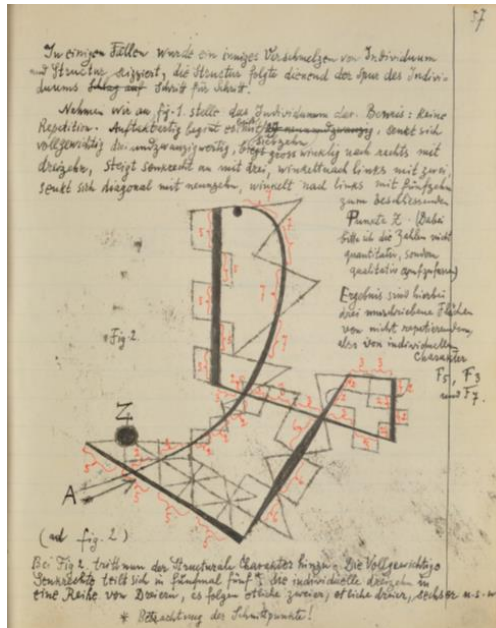 37
In einigen Fällen wurde ein inniges Verschmelzen von Individuum
und Structur skizziert, die Structur folgte dienend der Spur des Indivi-
duums Schlag auf Schritt für Schritt.
Nehmen wir an, fig. 1. stelle das Individuum dar. Beweis: keine
Repetition. Auftaktartig beginnt es mit siebzehn, senkt sich
vollgewichtig dreiundzwanzigwertig, biegt gross winklig nach rechts mit
dreizehn, steigt senkrecht an mit drei, winkelt nach links mit zwei,
senkt sich diagonal mit neunzehn, winkelt nach links mit fünfzehn
zum beschliessenden
Punkte Z. (Dabei
bitte ich die Zahlen nicht
quantitativ, sondern
qualitativ aufzufassen)
Ergebnis sind hierbei
drei umschriebene Flächen
von nicht repetierendem,
also von individuellem
Charakter
F5, F3
und F7.
Fig. 2.
Z
A
(ad fig. 2)
Bei Fig 2. tritt nun der structurale Charakter hinzu. Die Vollgewichtige
Senkrechte teilt sich in fünfmal fünf*, die individuelle dreizehn in
eine Reihe von Dreiern, es folgen etliche zweier, etliche dreier, sechser u.s.w
* Betrachtung der Schnittpunkte!